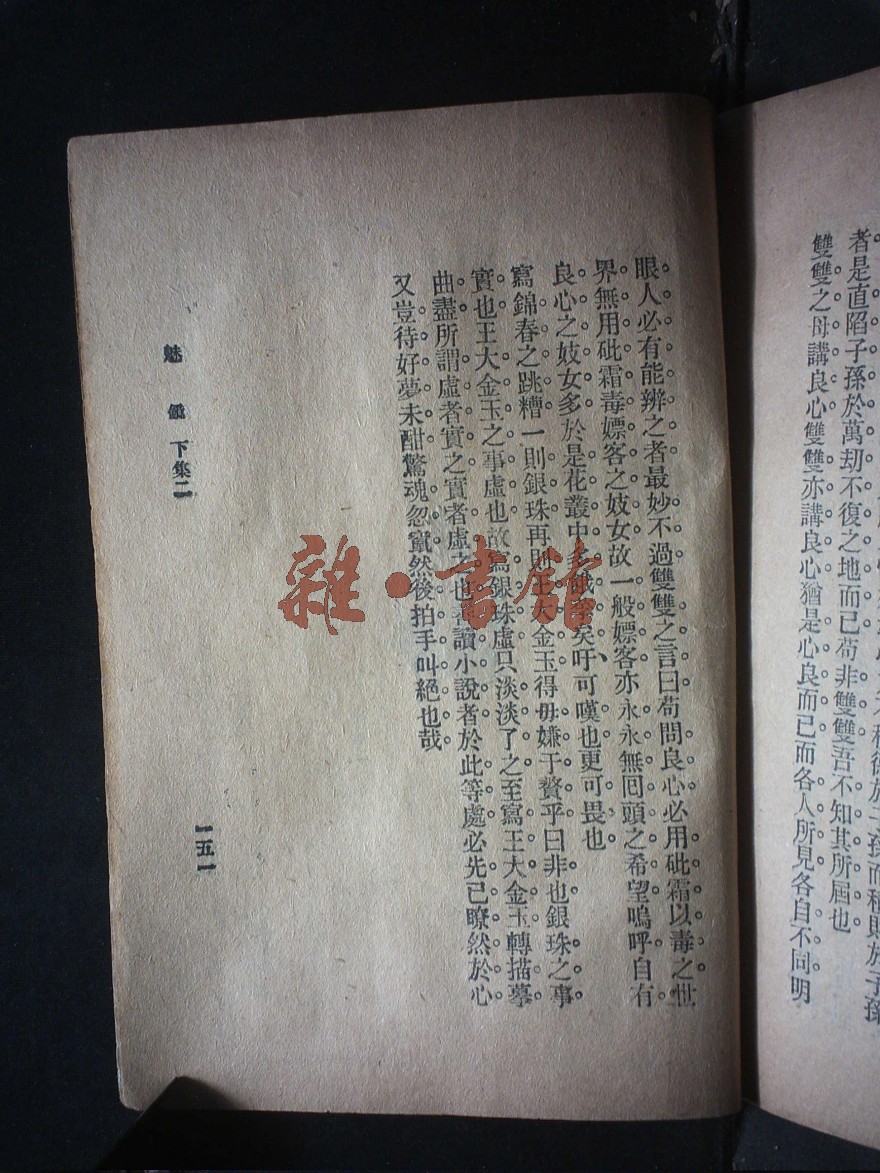 於子孫而積財於子孫
者是直陷子孫於萬劫不復之地而已苟非雙雙吾不知其所屆也
雙雙之母講良心雙雙亦講良心猶是心良而已而各人所見各自不同明
眼人必有能辨之者最妙不過雙雙之言曰苟問良心必用砒霜以毒之世
界無用砒霜毒嫖客之妓女故一般嫖客亦永永無囘頭之希望嗚呼自有
良心之妓女多於是花叢中多餓莩矣吁可嘆也更可畏也
寫錦春之跳糟一則銀珠再則王大金玉得毋嫌于贅乎曰非也銀珠之事
實也王大金玉之事虛也故寫銀珠虛只淡淡了之至寫王大金玉轉描摹
曲盡所謂虛者實之實者虛之也善讀小說者於此等處必先已瞭然於心
又豈待好夢未酣驚魂忽竄然後拍手叫絕也哉
魅 下集二
一五一
雜·書館